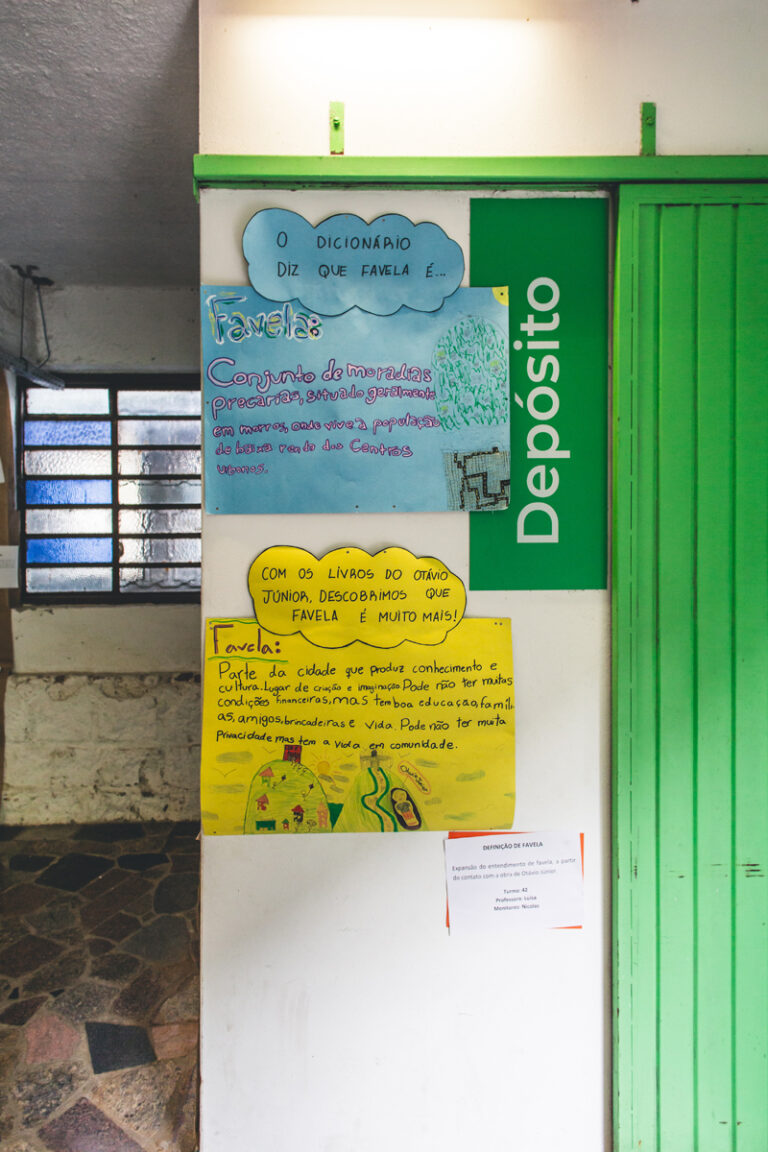 O DICIONÁRIO
DIZ QUE FAVELA É...
Favela:
Conjunto de moradias
precarias, situado geralmente
em morros, onde vive a população
de baixa renda dos Centros
urbanos.
Depósito
COM OS LIVROS DO OTÁVIO
JÚNIOR, DESCOBRIMOS QUE
FAVELA É MUITO MAIS!
Favela:
Parte da cidade que produz conhecimento e
cultura. Lugar de criação e imaginação. Pode não ter muitas
condições financeiras, mas tem boa educação, famíli
as, amigos, brincadeiras e vida. Pode não ter muita
privacidade mas tem a vida em comunidade.
DEFINIÇÃO DE FAVELA
Expansão do entendimento de favela, a partir
do contato com a obra de Otávio Júnior.
Turma: 42
Professora: Luísa
Monitores: Nicolas